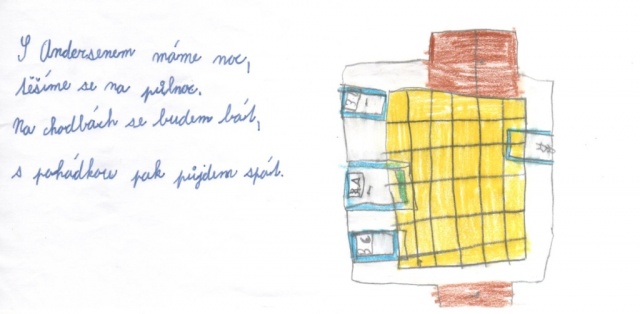 S Andersenem máme noc,
těšíme se na půlnoc.
Na chodbách se budem bát,
s pohádkou pak půjdem spát.
8.A